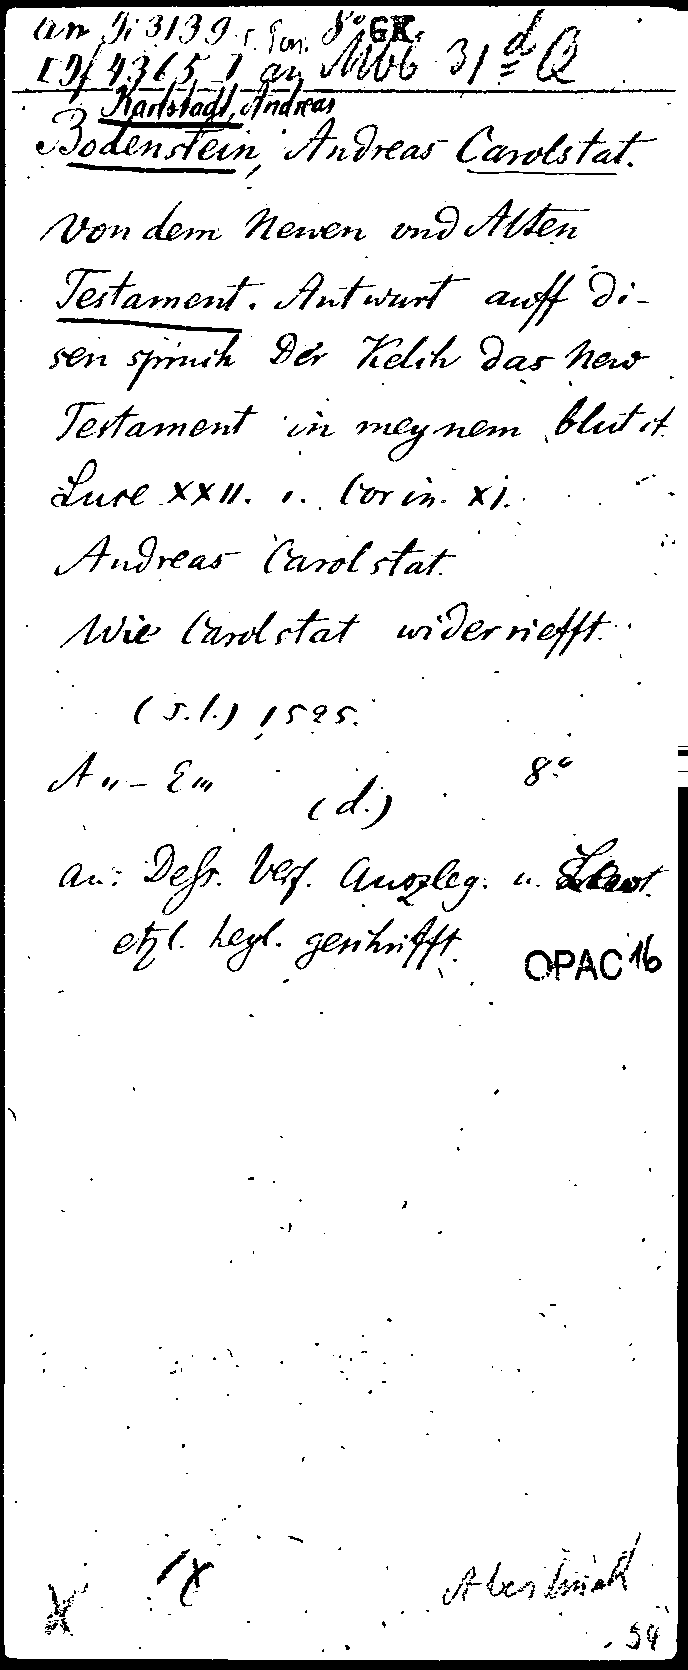 an Di 3139 8° GK.
4365 an Mbb 31 d Q
Karlstadt, Andreas
Bodenstein, Andreas Carolstat.
Von dem Newen vnd Alten
Testament. Antwurt auff di-
sen spruch Der Kelch das New
Testament in meynem blut
Luce XXII. i. Corin. XI.
Andreas Carolstat.
Wie Carolstat widerriefft.
(s.l.) 1525.
A - E 8°
(d.)
an: Dess. Verf. Auszleg. u.
etzl. heyl. geschrifft.
OPAC 16
54